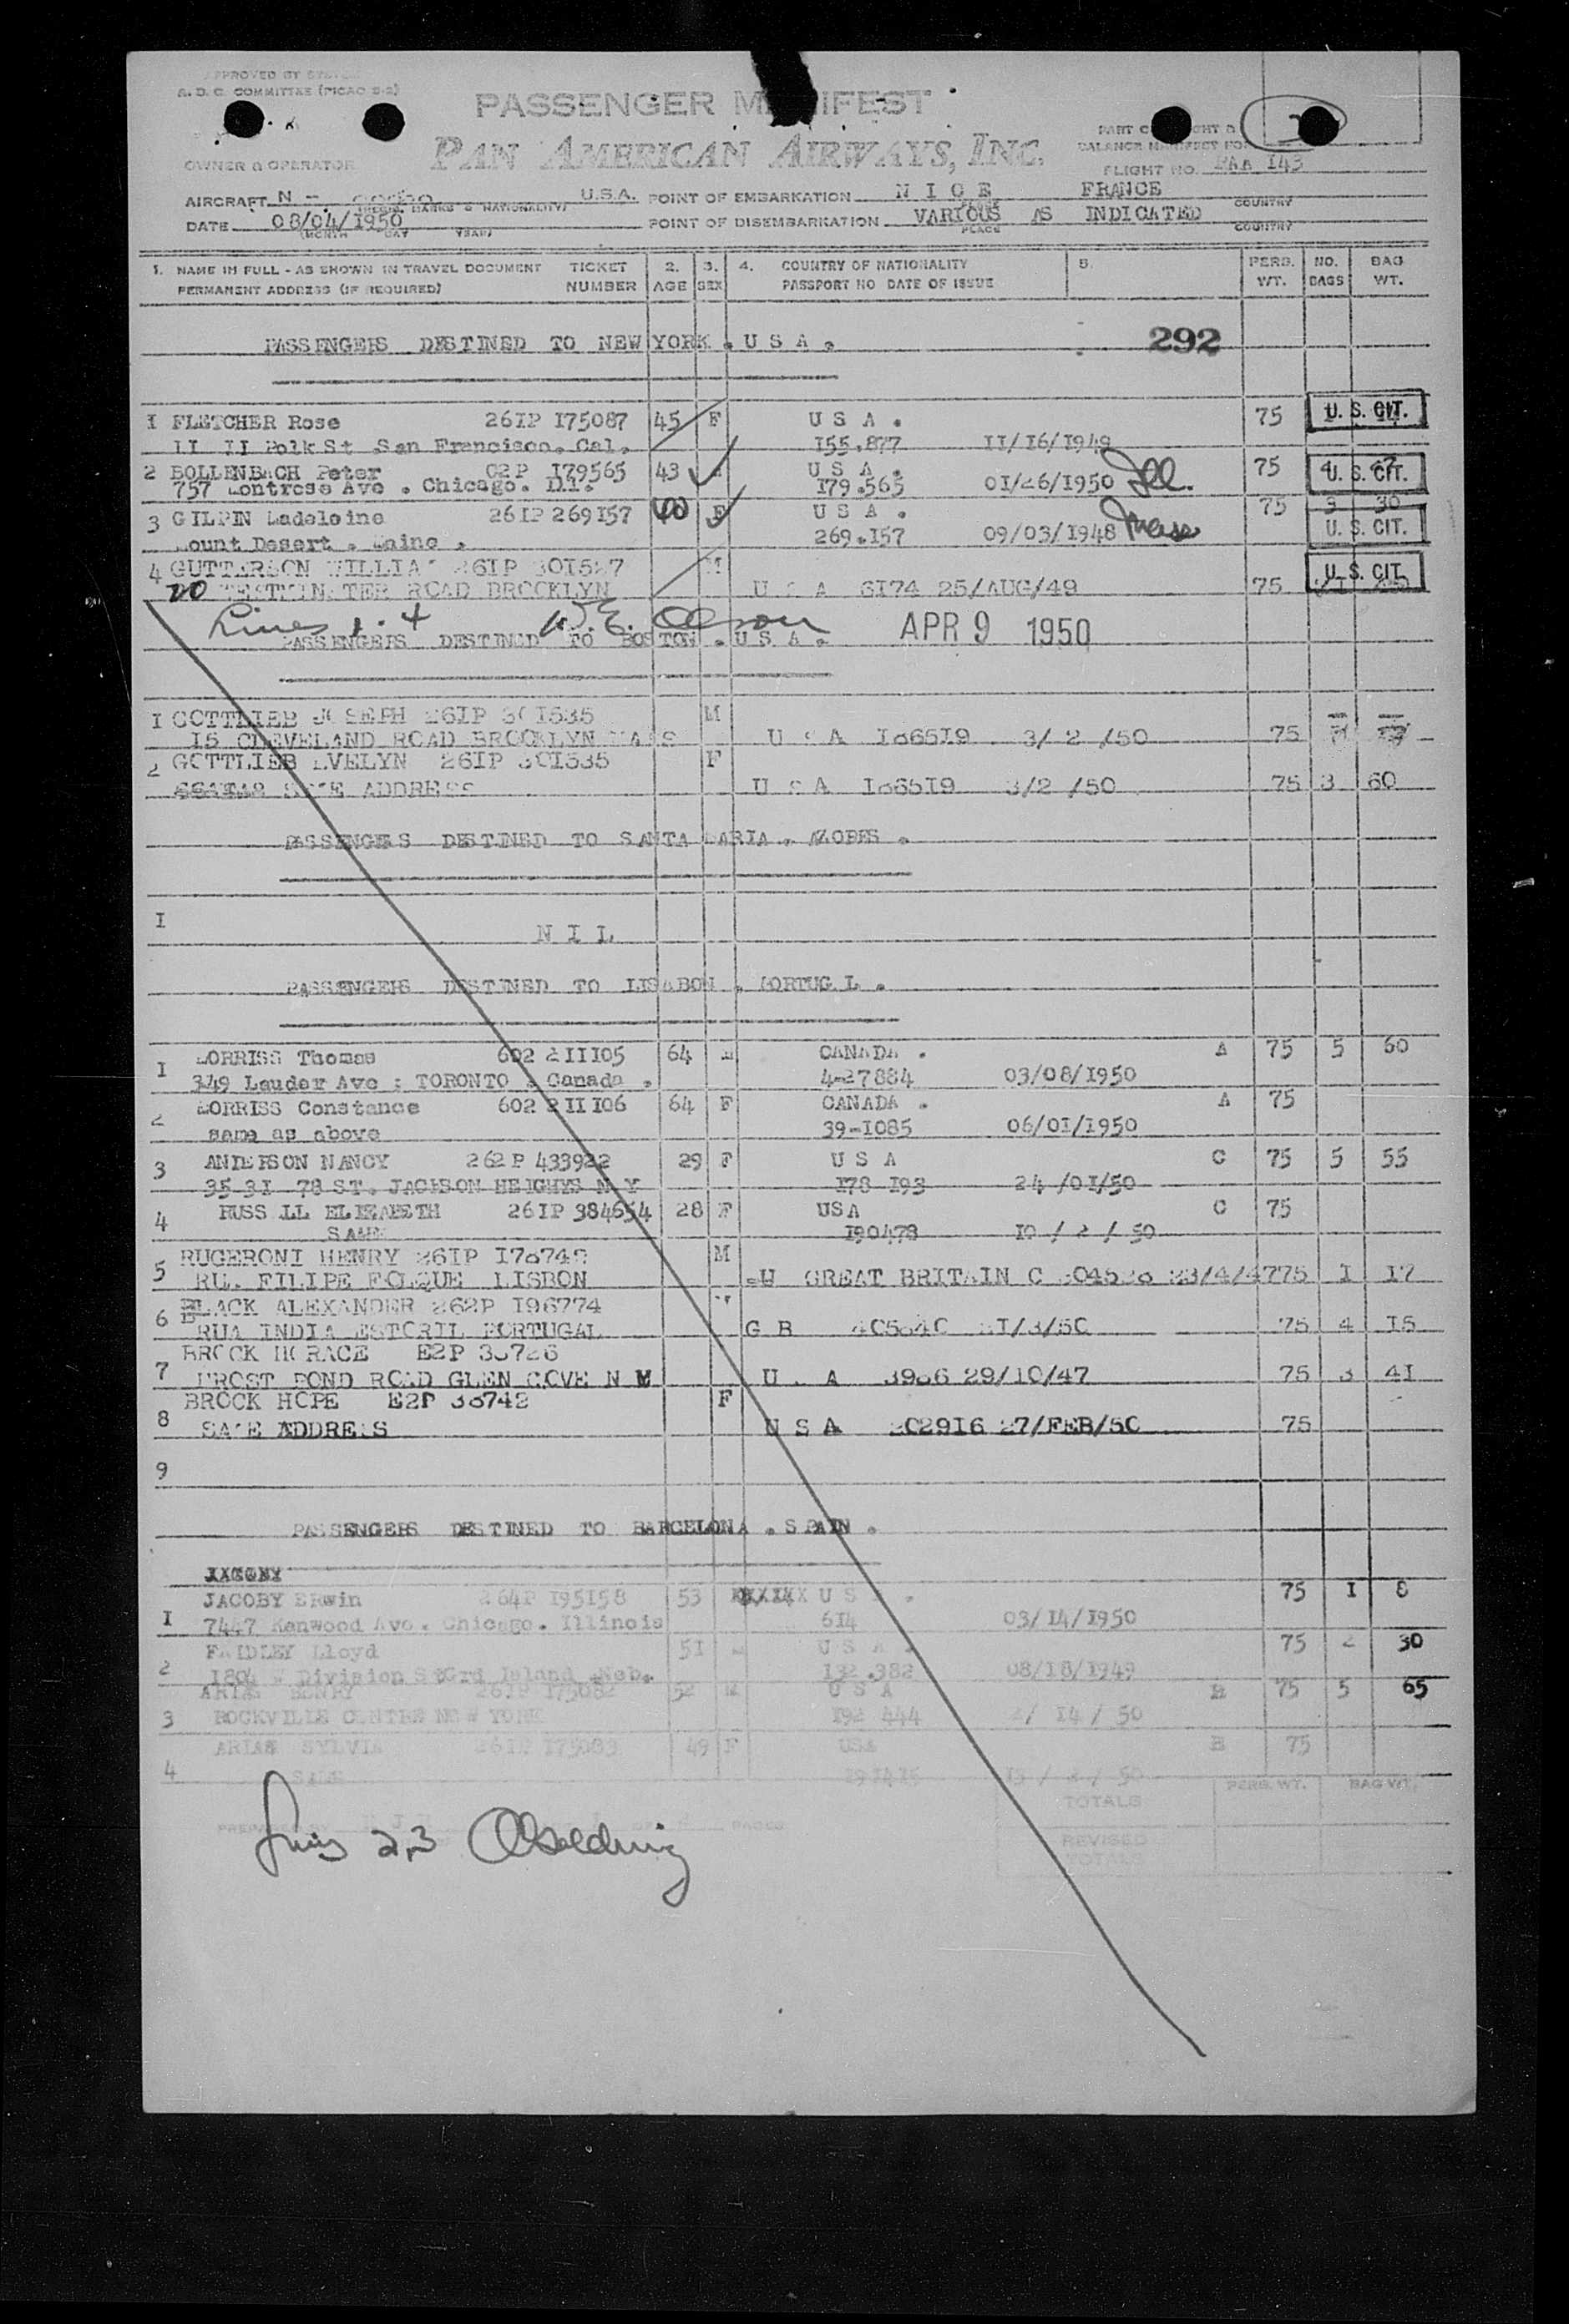 A. D. C. COMMITTEE (PICAO S-2)
PASSENGER M IFEST
PAN AMERICAN AIRWAYS, INC.
OWNER OR OPERATOR
FLIGHT NO. PAA I43
AIRCRAFT N - U.S.A. POINT OF EMBARKATION N I C E FRANCE
PLACE COUNTRY
DATE 08/04/1950 POINT OF DISEMBARKATION VARIOUS AS INDICATED
(MONTH DAY YEAR) PLACE COUNTRY
1. NAME IN FULL - AS SHOWN IN TRAVEL DOCUMENT TICKET 2. 3. 4. COUNTRY OF NATIONALITY 5. PERS. NO. BAG
PERMANENT ADDRESS (IF REQUIRED) NUMBER AGE SEX PASSPORT NO DATE OF ISSUE WT. BAGS WT.
PASSENGERS DESTINED TO NEW YORK . U S A . 292
I FLETCHER Rose 26IP I75087 45 F U S A . 75 U. S. CIT.
II II Polk St .San Francisco. Cal. I55.877 II/I6/I949
2 BOLLENBACH Peter 02P I79565 43 U S A . 75 U. S. CIT.
757 Montrose Ave . Chicago. Ill. I79.565 0I/26/I950 Ill.
3 GILPIN Madeleine 26IP 269I57 F U S A . 75 9 30
Mount Desert . Maine . 269.I57 09/03/I948 U. S. CIT.
4 GUTTERSON WILLIA 26IP 30I527 M U. S. CIT.
20 ROAD BROOKLYN U S A 6I74 25/AUG/49 75
Lines 1. 4 W.E. Olson APR 9 1950
PASSENGERS DESTINED TO BOSTON . U S A .
I GOTTLIEB JOSEPH 26IP 30I535 M
I5 CLEVELAND ROAD BROOKLYN MASS U S A I865I9 3/ 2 /50 75
2 GOTTLIEB EVELYN 26IP 30I535 F
SAME ADDRESS U S A I865I9 3/2 /50 75 3 60
PASSENGERS DESTINED TO SANTA MARIA . AZORES .
I
N I L
PASSENGERS DESTINED TO LISABON . PORTUG L .
I MORRISS Thomas 602 2II105 64 M CANADA . A 75 5 60
349 Lauder Ave : TORONTO . Canada . 4-27884 03/08/I950
2 MORRISS Constance 602 2II106 64 F CANADA . A 75
same as above 39-I085 06/0I/I950
3 ANDERSON NANCY 262P 433922 29 F U S A C 75 5 55
35 3I 78 ST. JACKSON HEIGHYS N Y I78 I93 24 /0I/50
4 RUSS LL ELIZABETH 26IP 384654 28 F USA C 75
SAME I90478 I0 / 2 / 50
5 RUGERONI HENRY 26IP I78749 M
RUE FILIPE FOLQUE LISBON GREAT BRITAIN C 23/4/4775 I I7
6 BLACK ALEXANDER 262P I96774
RUA INDIA ESTORIL PORTUGAL G B 3I/3/50 75 4 I5
7 BROCK HORACE E2P 38726
FROST POND ROAD GLEN COVE N M U . A 3986 29/10/47 75 3 4I
8 BROCK HOPE E2P 38742 F
SAME ADDRESS U S A 2029I6 27/FEB/50 75
9
PASSENGERS DESTINED TO BARCELONA . SPAIN .
I JACOBY Erwin 264P I95I58 53 U S . 75 I 8
7447 Kenwood Ave. Chicago. Illinois 6I4 03/I4/I950
2 FAIDLEY Lloyd 5I M U S A . 75 2 30
I804 W Division StGrd Island .Neb. I32.382 08/I8/I949
3 ARIAS HENRY 26IP I75082 52 M U S A B 75 5 65
ROCKVILLE CENTRE NEW YORK I92 444 2/ I4 / 50
4 ARIAS SYLVIA 26IP I75083 49 F USA B 75
SAME I9I4I5 I3 / 2 / 50
PERS. WT. BAG WT.
TOTALS
PREPARED BY PAGES
REVISED
TOTALS
Lines 2,3